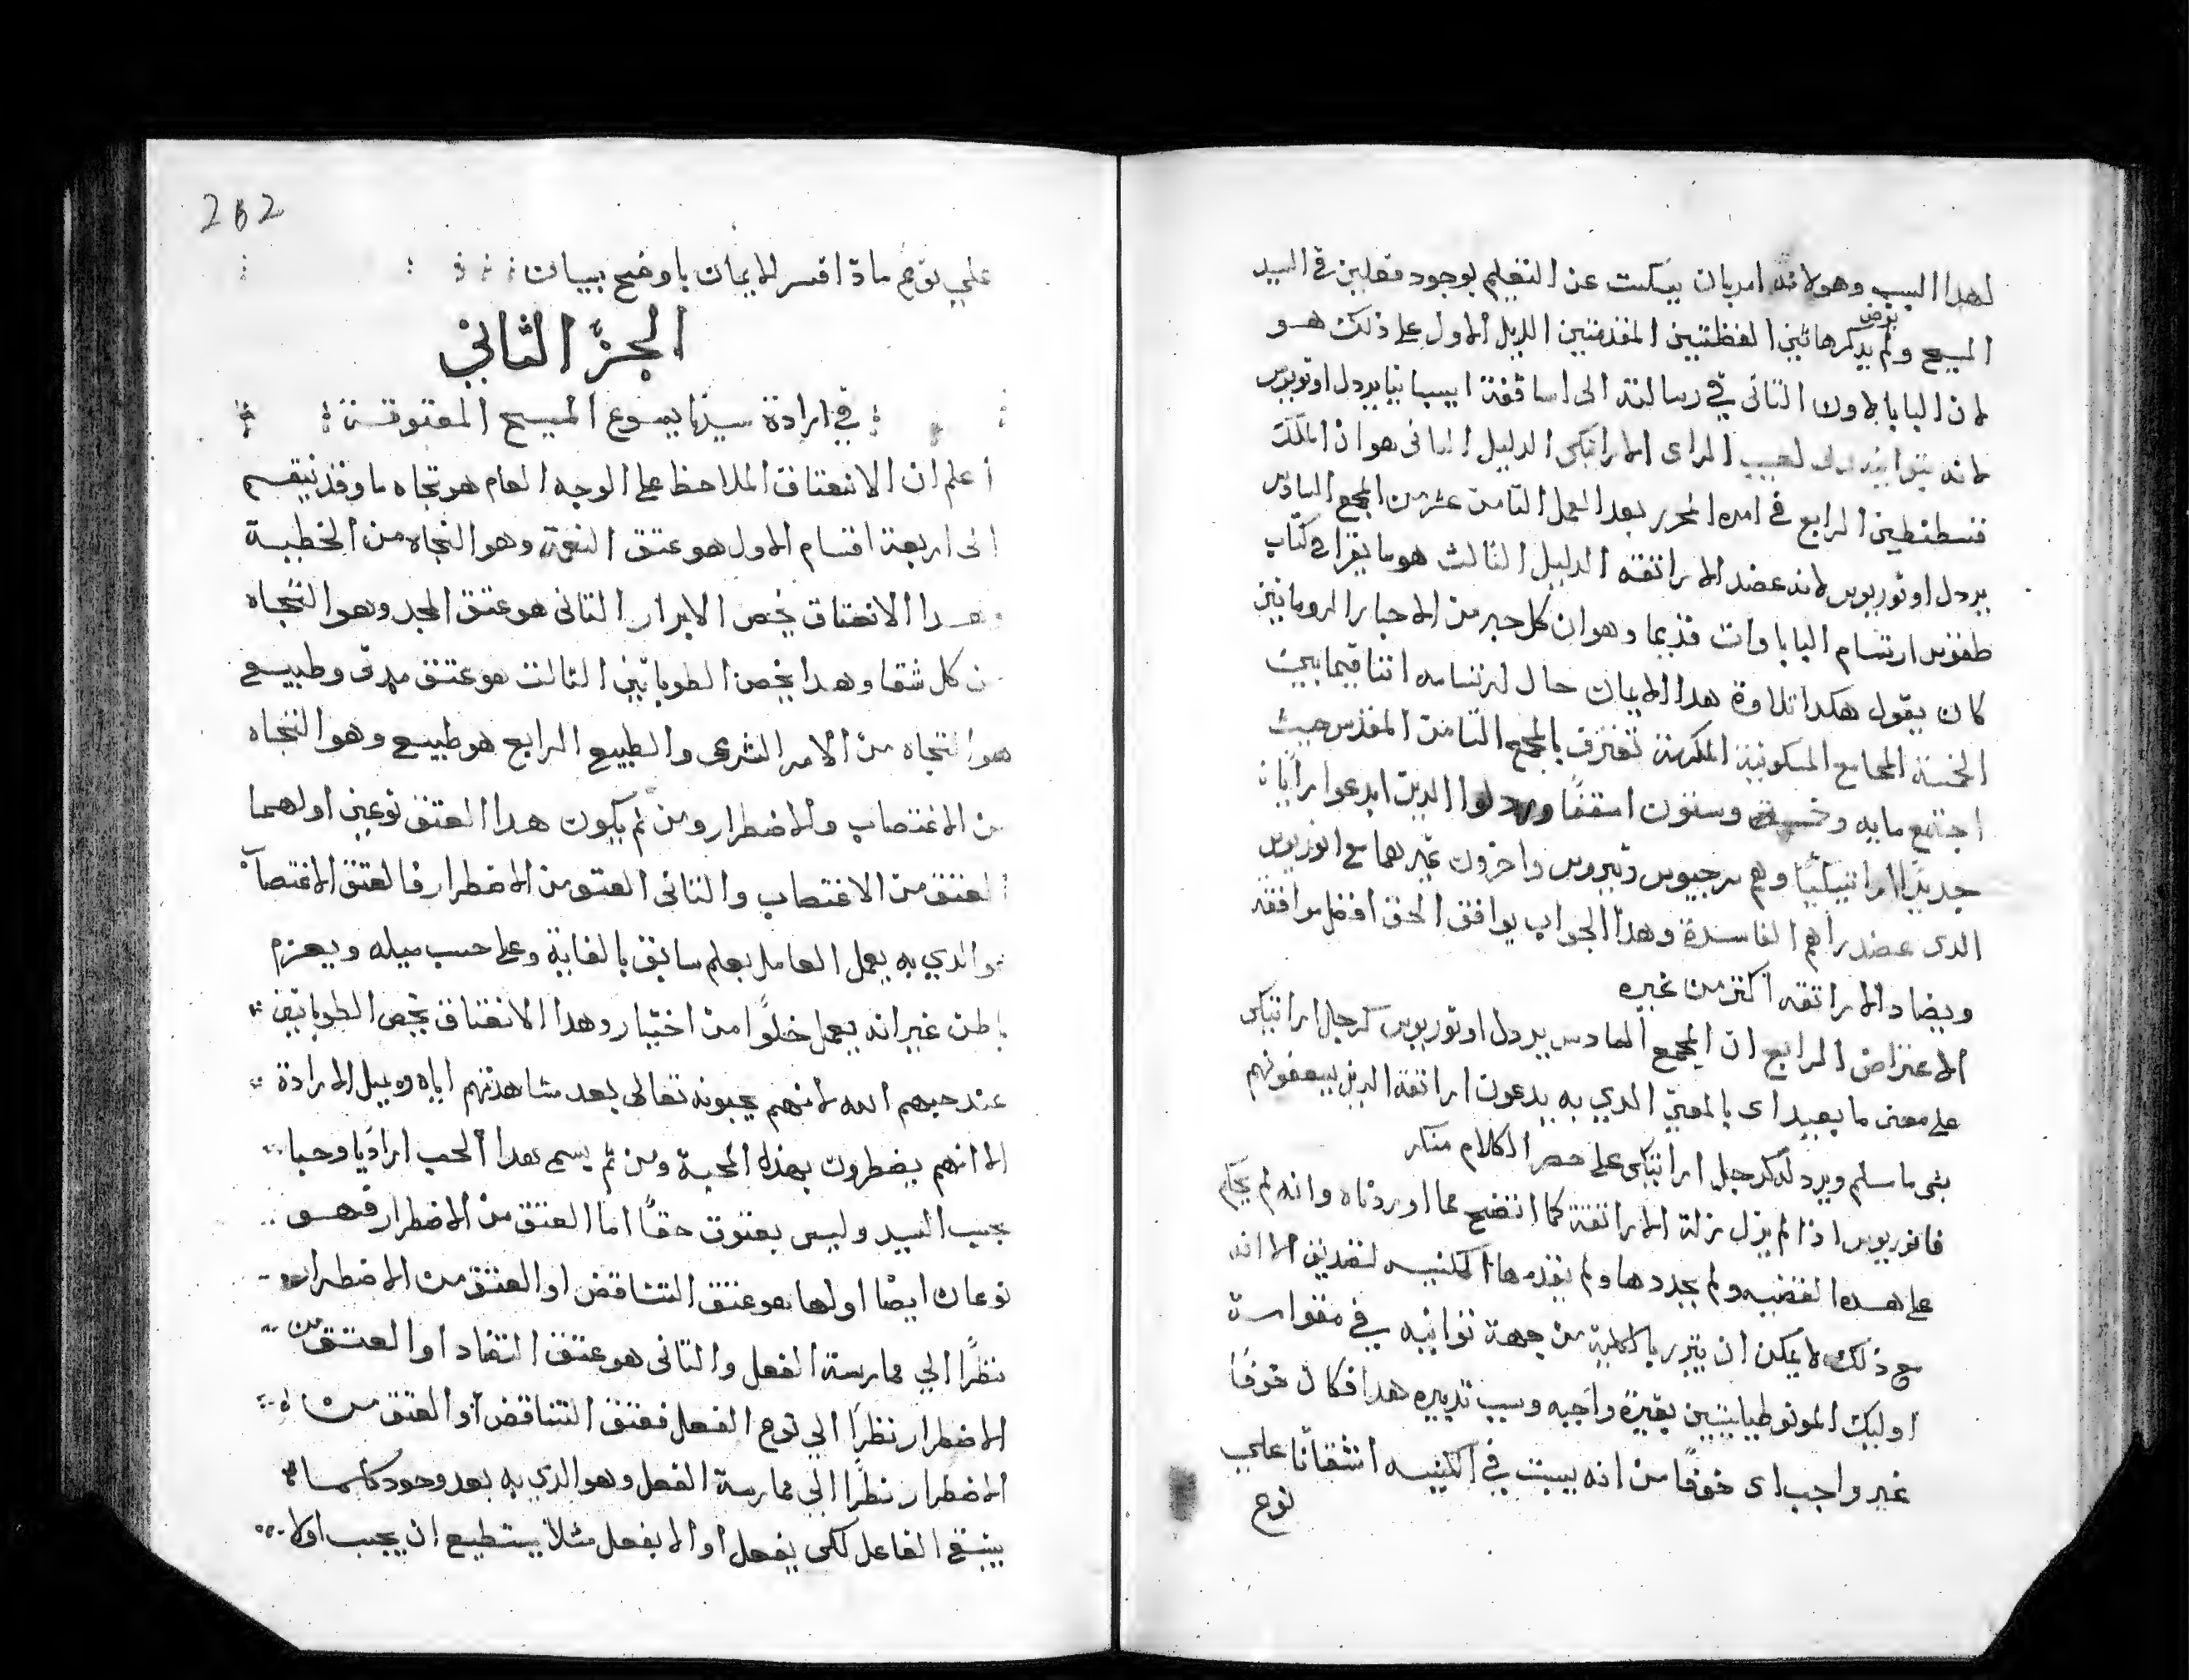 لهدا السبب وهو لانه امر بان يسكت عن التعليم بوجود فعلين في السيد
المسيح ولم يذكر هاتين اللفظتين المقدمتين الدليل الاول على ذلك هو
لان البابا لاون التاني في رسالته الى اساقفة اسبانيا يردل اونوريوس
لانه بتوانيه لعيب الراى الاراتيكى الدليل التانى هو ان الملك
قسطنطين الرابع في امره المحرر بعد العمل التامن عشر من المجمع السادس
يردل اونوريوس لانه عضد الاراتقه الدليل التالت هو ما يقرا في كتاب
طقوس ارتسام الباباوات قديما وهو ان كل حبر من الاحبار الرومانيين
كان يقول هكدا تلاوة هدا الايمان حال ارتسامه اننا فيما بين
الخمسة المجامع المسكونية المكرمة نعترف بالمجمع التامن المقدس حيث
اجتمع مايه وخمسة وستون اسقفًا وردلوا الدين ابدعوا رايًا
جديدًا اراتيكيًا وهم سرجيوس وبيروس واخرون غيرهما مع انوريوس
الدى عضد راهم الفاسدة وهدا الجواب يوافق الحق افضل موافقه
ويضاد الاراتقه اكتر من غيره
الاعتراض الرابع ان المجمع السادس يردل اونوريوس كرجل اراتيكى
على معنى ما بعيد اى بالمعنى الدي به يدعون اراتقة الدين يسعفونهم
بنى ما سلم ويردل كرجل اراتيكى على حصر الكلام منكر
فانوريوس ادا لم يزل زلة الاراتقة كما اتضح مما اوردناه وانه لم يحكم
على هده القضيه ولم يحددها ولم يقدمها الكنيسه لتصديق الا انه
مع ذلك لا يمكن ان يتبرر بالكلية من جهة توانيه في مقواسة
اوليك المونوطيليتيين بغيرة واجبه وسبب تدبيره هدا فكان خوفًا
غير واجب اى خوفًا من انه يسبب في الكنيسه انشقاقًا علي
نوع
262
علي نوع ماذا افسر الايمان باوضح بيان
الجزء الثاني
في ارادة سيدنا يسوع المسيح المعتوقة
اعلم ان الانعتاق الملاحظ على الوجه العام هو نجاه ما وقد ينقسم
الى اربعة اقسام الاول هو عتق النعمة وهو النجاه من الخطية
وهدا الانعتاق يخص الابرار التانى هو عتق المجد وهو النجاه
من كل شقا وهدا يخص الطوباتيين التالت هو عتق مدنى وطبيعي
هو النجاه من الامر الشرعى والطبيعي الرابع هو طبيعي وهو النجاه
من الاغتصاب والاضطرار ومن ثم يكون هدا العتق نوعين اولهما
العتق من الاغتصاب والتانى العتق من الاضطرار فالعتق الاغتصاب
هو الدي به يعمل العامل بعلم سابق بالغاية وعلى حسب ميله وبعزم
باطن غير انه يعمل خلوًا من اختيار وهدا الانعتاق يخص الطوباتيين
عند حبهم الله لانهم يحبونه تعالى بعد مشاهدتهم اياه وميل الارادة
الا انهم يضطرون بهده المحبة ومن ثم يسمى هدا الحب اراديًا وحبا
بحسب السيد وليس بعتوق حقًا اما العتق من الاضطرار فهو
نوعان ايضًا اولها هو عتق التناقض او العتق من الاضطرار
نظرًا الي ممارسة الفعل والتانى هو عتق التضاد او العتق من
الاضطرار نظرًا الي نوع الفعل فعتق التناقض او العتق من
الاضطرار نظرًا الي ممارسة الفعل وهو الدي به بعد وجود كلما
ينبغي الفاعل لكى يفعل او الا يفعل مثلا يستطيع ان يحب اولا